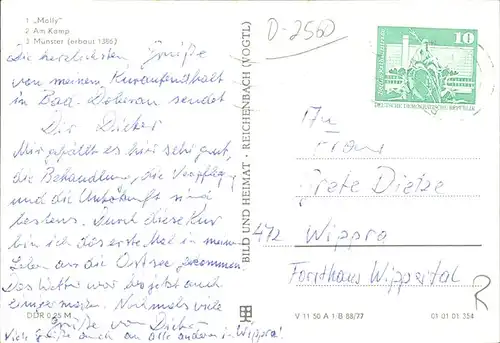 1 „Molly"
2 Am Kamp
3 Münster (erbaut 1386)
Die herzlichsten Grüße
von meinem Kuraufenthalt
in Bad-Doberan sendet
Dir Dieter
Mir gefällt es hier sehr gut,
die Behandlung, die Verpfleg.
und die Unterkunft sind
bestens. Durch diese Kur
bin ich das erste Mal in mein.
Leben an die Ostsee gekommen.
Das Wetter war bis jetzt auch
einigermaßen. Nochmals viele
Grüße von Dieter
Viele Grüße auch an alle anderen in Wippra!
DDR 0,25 M
BILD UND HEIMAT · REICHENBACH (VOGTL)
D-2560
10
DEUTSCHE DEMOKRATISCHE REPUBLIK
An
Frau
Grete Dietze
472 Wippra
Forsthaus Wippertal
V 11 50 A 1/B 88/77
01 01 01 354